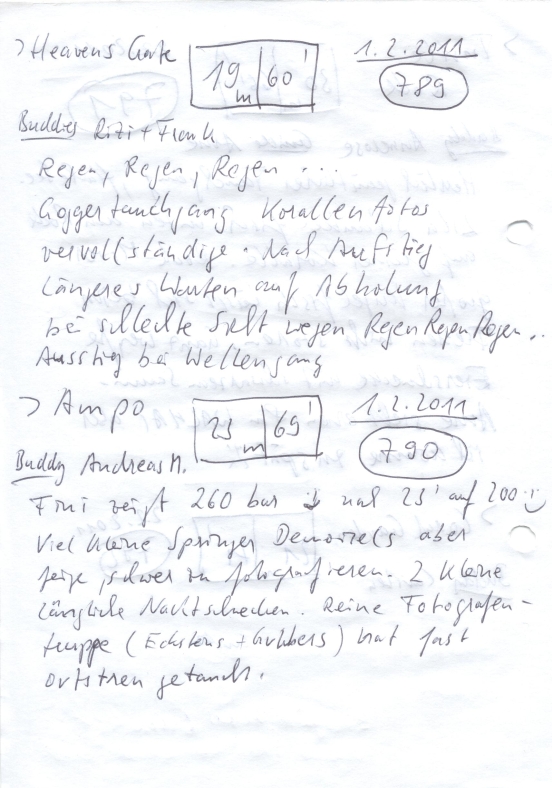 > Heavens Gate 19 m 60' 1.2.2011
789
Buddies Rizi + Frank
Regen, Regen, Regen ...
Goggertauchgang Korallenfotos
vervollständige. Nach Aufstieg
längeres Warten auf Abholung
bei schlechte Sicht wegen RegenRegenRegen...
Ausstieg bei Wellengang
> Ampo 23 m 69' 1.2.2011
790
Buddy Andreas M.
Fini zeigt 260 bar nach 23' auf 200 :)
Viel kleine Springer Demoisels aber
feige, schwer zu fotografieren. 2 kleine
längliche Nachtschnecken. Reine Fotografen-
truppe (Ecksteins + Gubbers) hat fast
ortstreu getaucht.